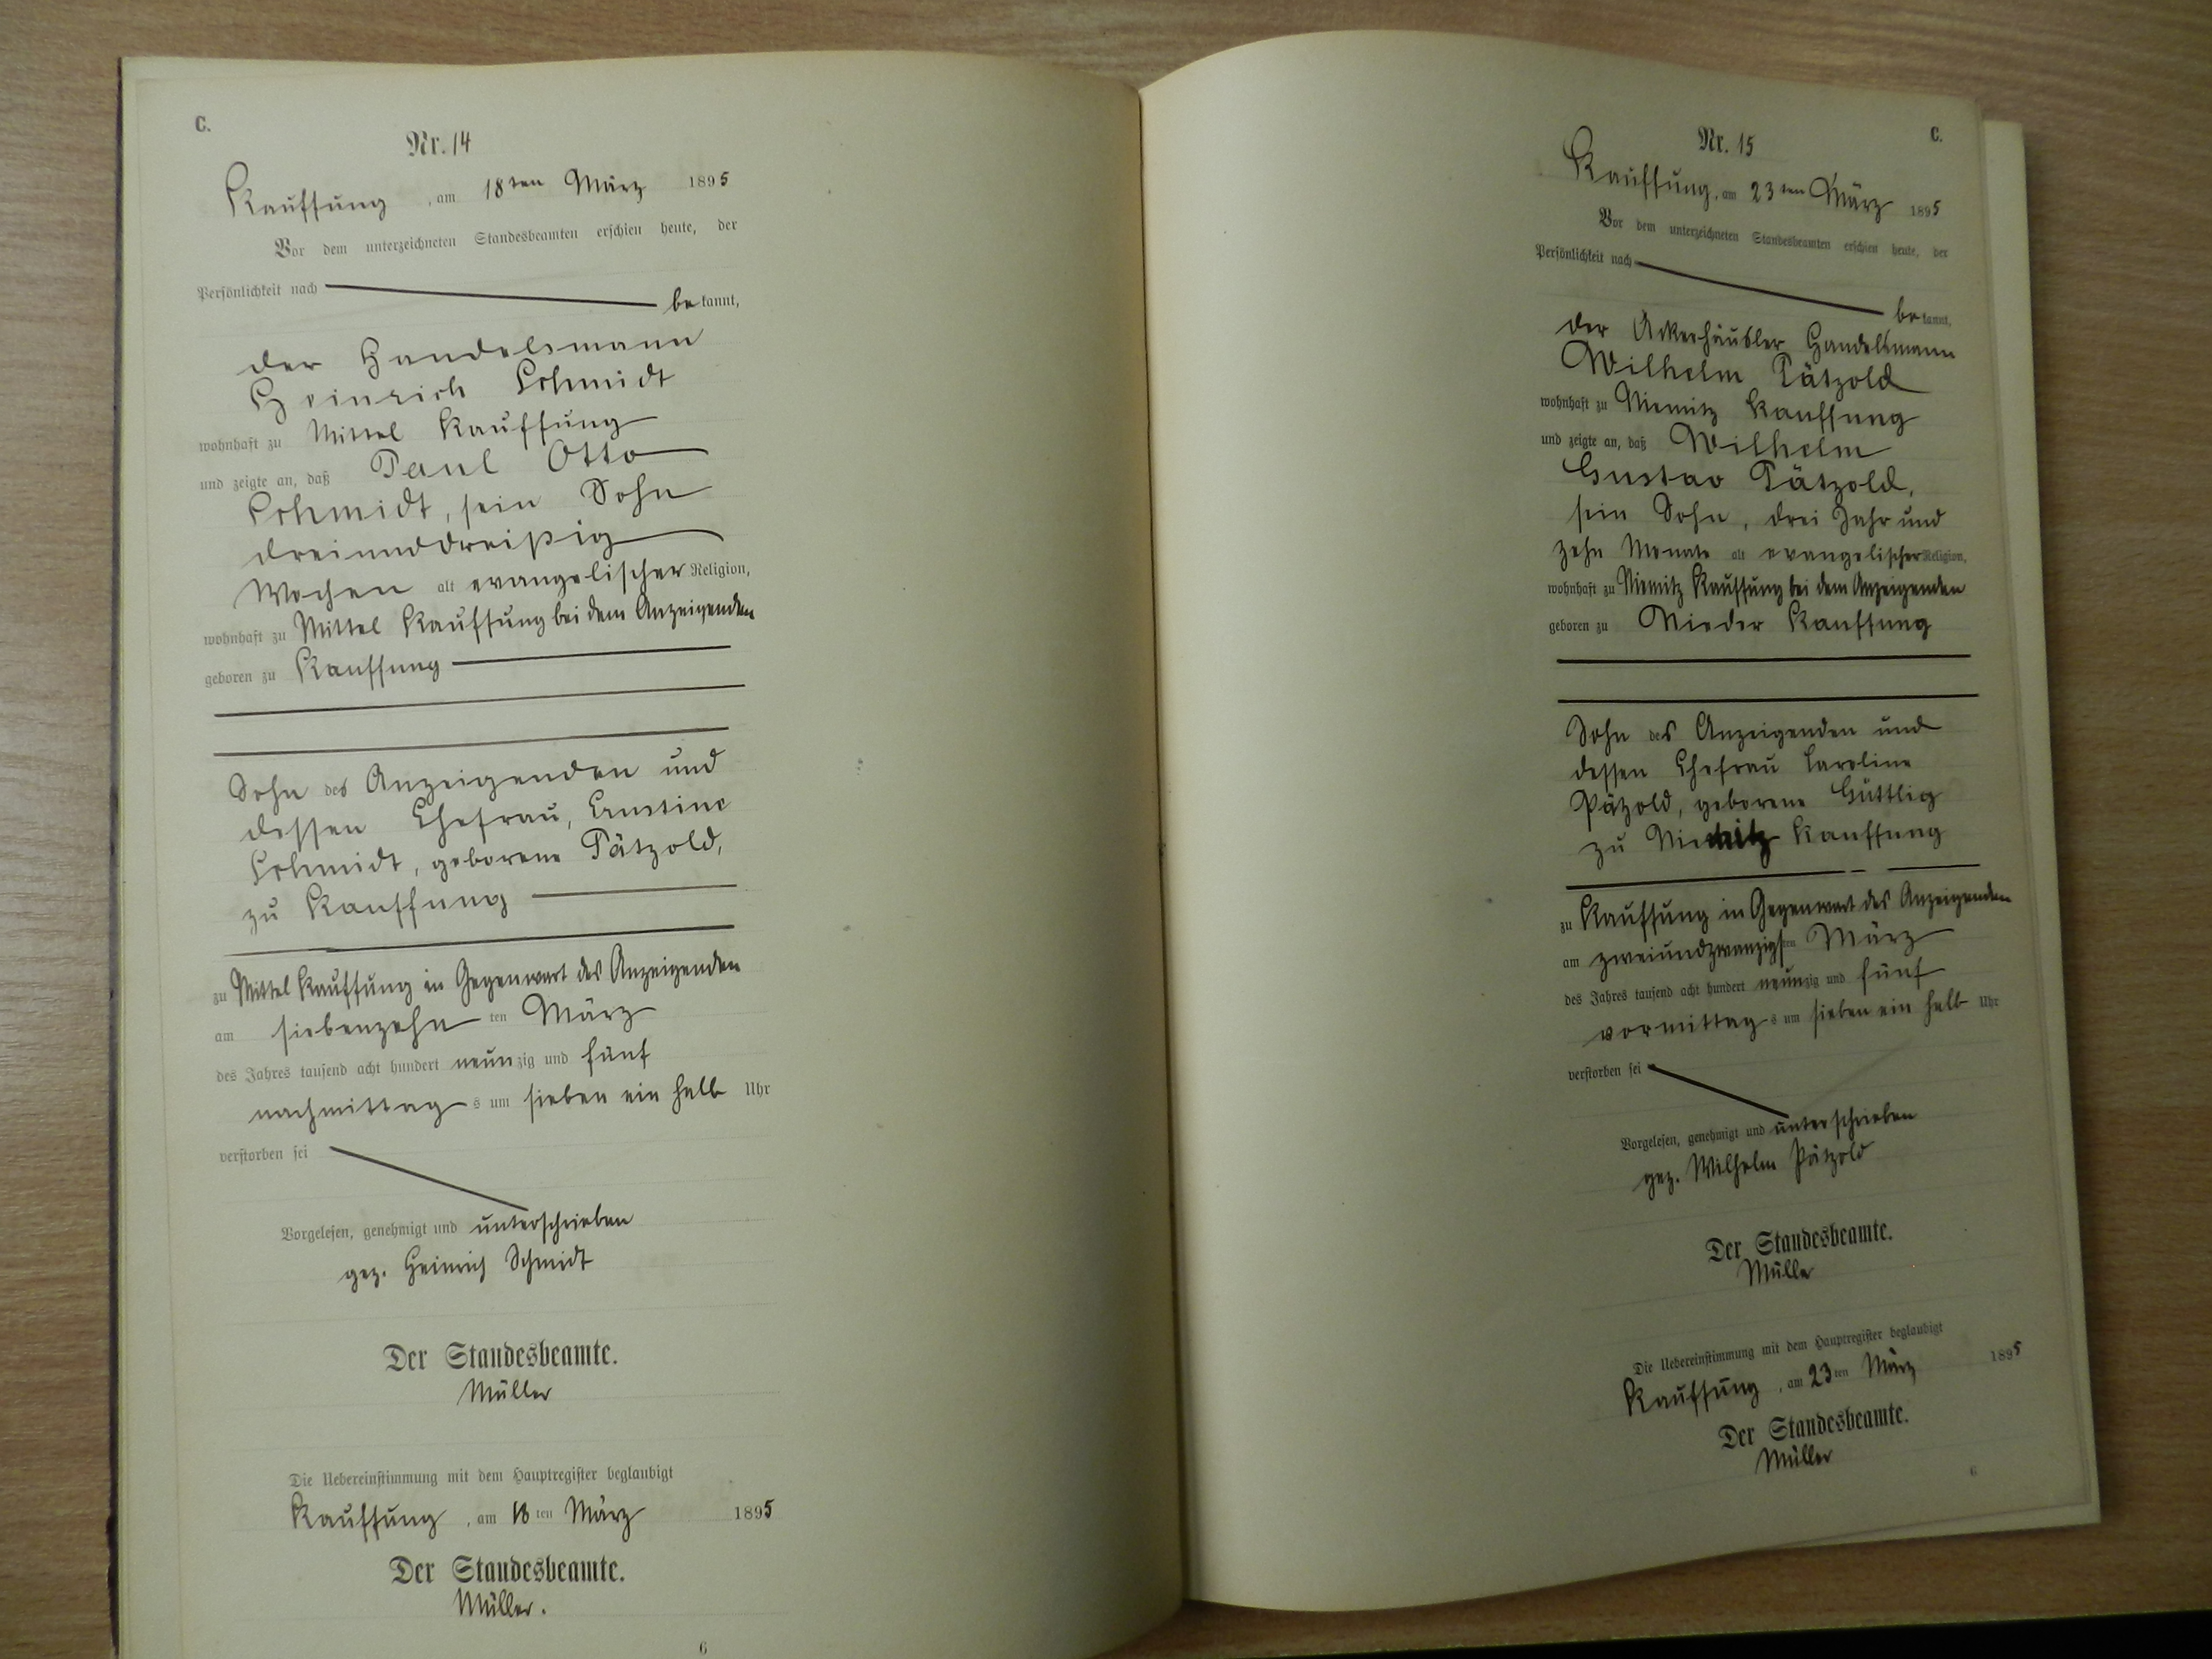 C.
Nr. 14
Kauffung, am 18ten März 1895
Vor dem unterzeichneten Standesbeamten erschien heute, der
Persönlichkeit nach
bekannt,
der Handelsmann
Heinrich Schmidt
wohnhaft zu Mittel Kauffung
und zeigte an, daß Paul Otto
Schmidt, sein Sohn
dreiunddreißig
Wochen alt evangelischer Religion,
wohnhaft zu Mittel Kauffung bei dem Anzeigenden
geboren zu Kauffung
Sohn des Anzeigenden und
dessen Ehefrau, Ernstine
Schmidt, geborene Pätzold,
zu Kauffung
zu Mittel Kauffung in Gegenwart des Anzeigenden
am siebenzehn ten März
des Jahres tausend acht hundert neunzig und fünf
nachmittags um sieben ein halb Uhr
verstorben sei
Vorgelesen, genehmigt und unterschrieben
gez. Heinrich Schmidt
Der Standesbeamte.
Müller
Die Uebereinstimmung mit dem Hauptregister beglaubigt
Kauffung, am 18ten März 1895
Der Standesbeamte.
Müller.
6
C.
Nr. 15
Kauffung, am 23ten März 1895
Vor dem unterzeichneten Standesbeamten erschien heute, der
Persönlichkeit nach
bekannt,
der Ackerhäusler Handelsmann
Wilhelm Pätzold
wohnhaft zu Niemitz Kauffung
und zeigte an, daß Wilhelm
Gustav Pätzold,
sein Sohn, drei Jahr und
zehn Monate alt evangelischer Religion,
wohnhaft zu Niemitz Kauffung bei dem Anzeigenden
geboren zu Nieder Kauffung
Sohn des Anzeigenden und
dessen Ehefrau Caroline
Pätzold, geborene Güttlig
zu Niemitz Kauffung
zu Kauffung in Gegenwart des Anzeigenden
am zweiundzwanzigsten März
des Jahres tausend acht hundert neunzig und fünf
vormittags um sieben ein halb Uhr
verstorben sei
Vorgelesen, genehmigt und unterschrieben
gez. Wilhelm Pätzold
Der Standesbeamte.
Müller
Die Uebereinstimmung mit dem Hauptregister beglaubigt
Kauffung, am 23ten März 1895
Der Standesbeamte.
Müller
6